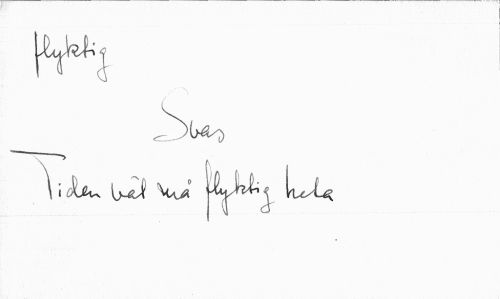 flyktig
Svas
Tiden väl må flyktig heta